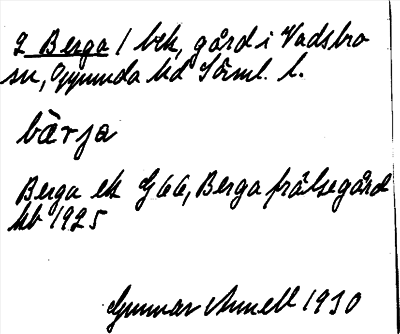 2 Berga / bek, gård i Vadsbro
sn, Oppunda hd Söml. l.
bàrja
Berga ek G 66, Berga frälsegård
kb 1925
Gunnar Annell 1930